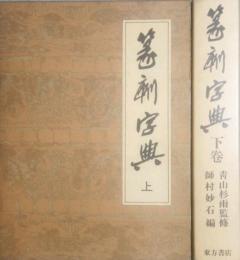 篆刻字典
上
篆刻字典
下巻
青山杉雨監修
師村妙石編
東方書店